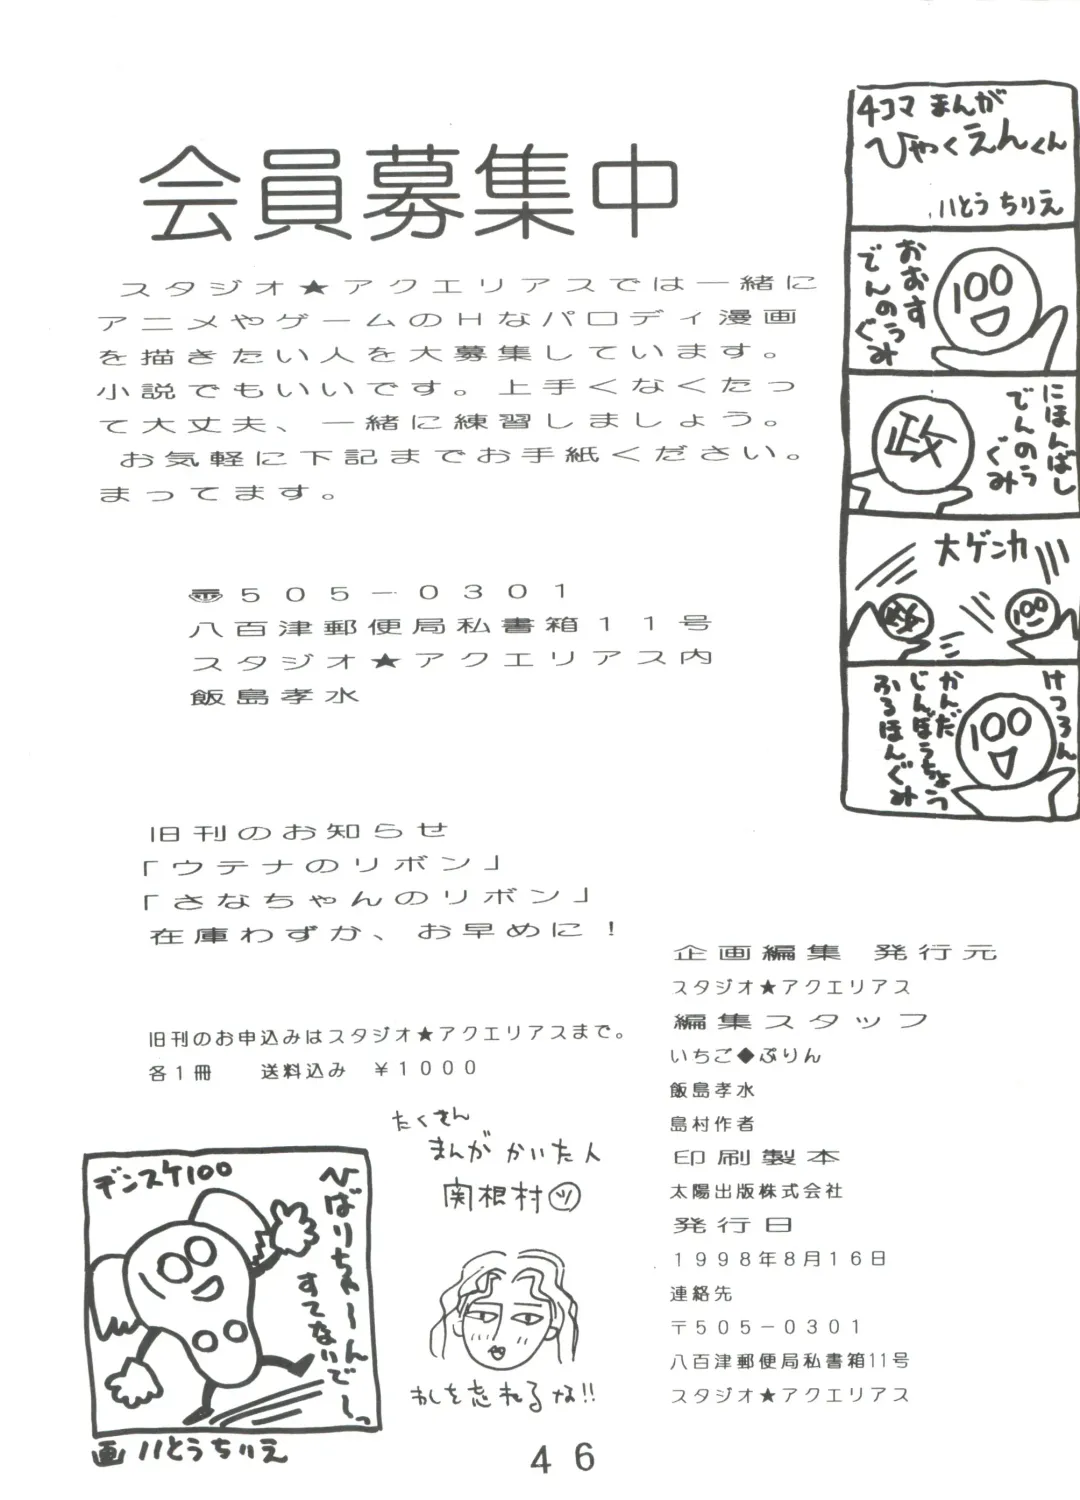 会員募集中
スタジオ★アクエリアスでは一緒に
アニメやゲームのHなパロディ漫画
を描きたい人を大募集しています。
小説でもいいです。上手くなくたっ
て大丈夫、一緒に練習しましょう。
お気軽に下記までお手紙ください。
まってます。
〠505－0301
八百津郵便局私書箱11号
スタジオ★アクエリアス内
飯島孝水
旧刊のお知らせ
「ウテナのリボン」
「さなちゃんのリボン」
在庫わずか、お早めに！
旧刊のお申込みはスタジオ★アクエリアスまで。
各1冊　送料込み　￥1000
4コマ まんが
ひゃくえんくん
いとう ちりえ
おおす
でんのうぐみ
100
にほんばし
でんのうぐみ
政
大ゲンカ
政
100
けつろん
100
かんだ
じんぼうちょう
ふるほんぐみ
企画編集 発行元
スタジオ★アクエリアス
編集スタッフ
いちご◆ぷりん
飯島孝水
島村作者
印刷製本
太陽出版株式会社
発行日
1998年8月16日
連絡先
〒505－0301
八百津郵便局私書箱11号
スタジオ★アクエリアス
たくさん
まんが かいた人
関根村ツ
わしを忘れるな!!
デンスケ100
ひばりちゃーん
すてないでーっ
画 いとうちりえ
46